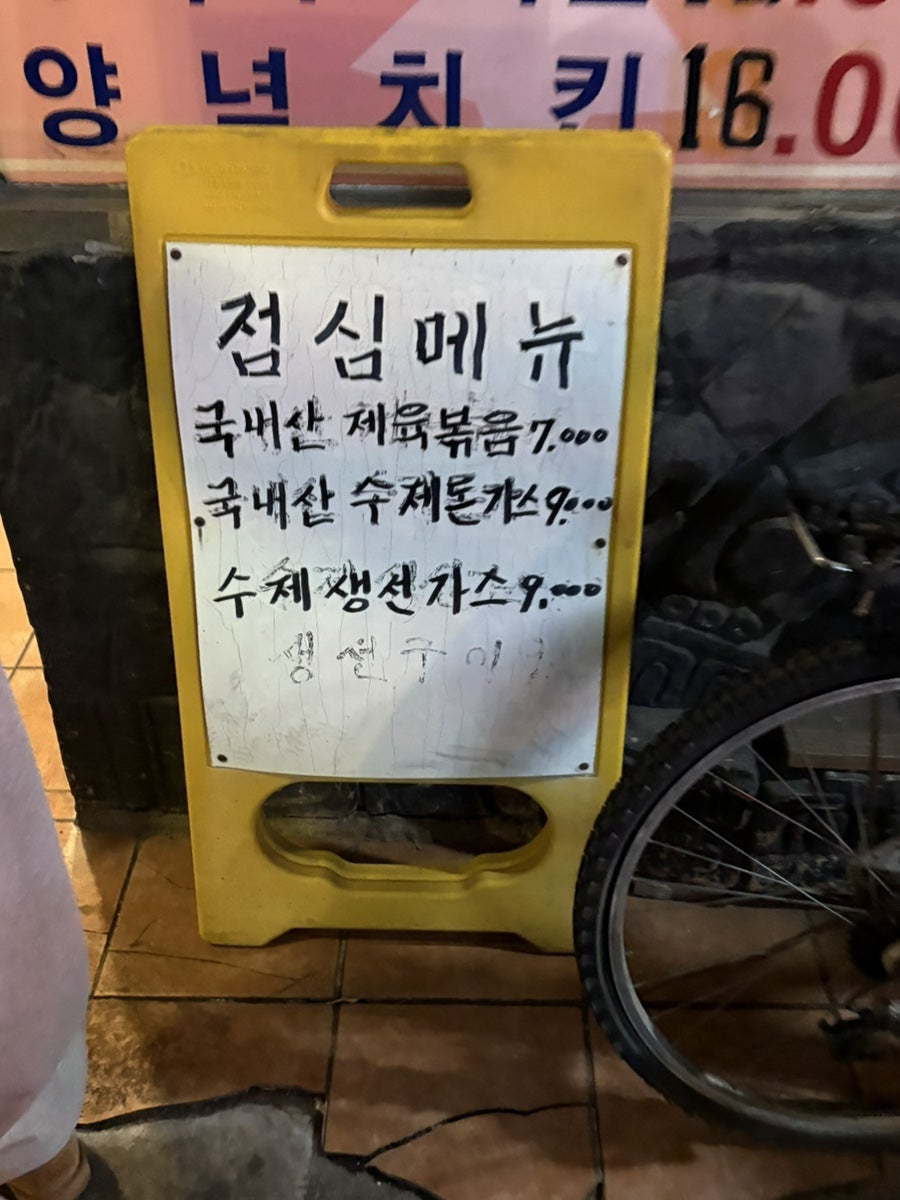 양념치킨 16.00
점심메뉴
국내산 제육볶음 7.000
국내산 수제돈가스 9.000
수제생선가스 9.000
생선구이